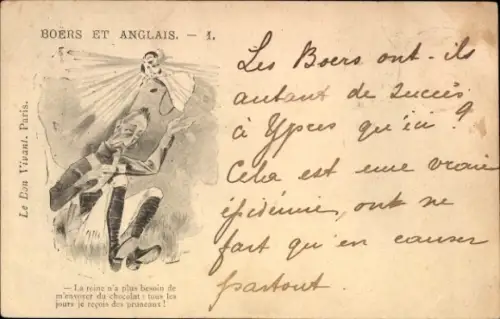 BOERS ET ANGLAIS. — 1.
Le Bon Vivant, Paris.
— La reine n'a plus besoin de
m'envoyer du chocolat : tous les
jours je reçois des pruneaux !
Les Boers ont-ils
autant de succès
à Ypres qu'ici ?
Cela est une vraie
épidémie, ont ne
fait qu'en causer
partout.